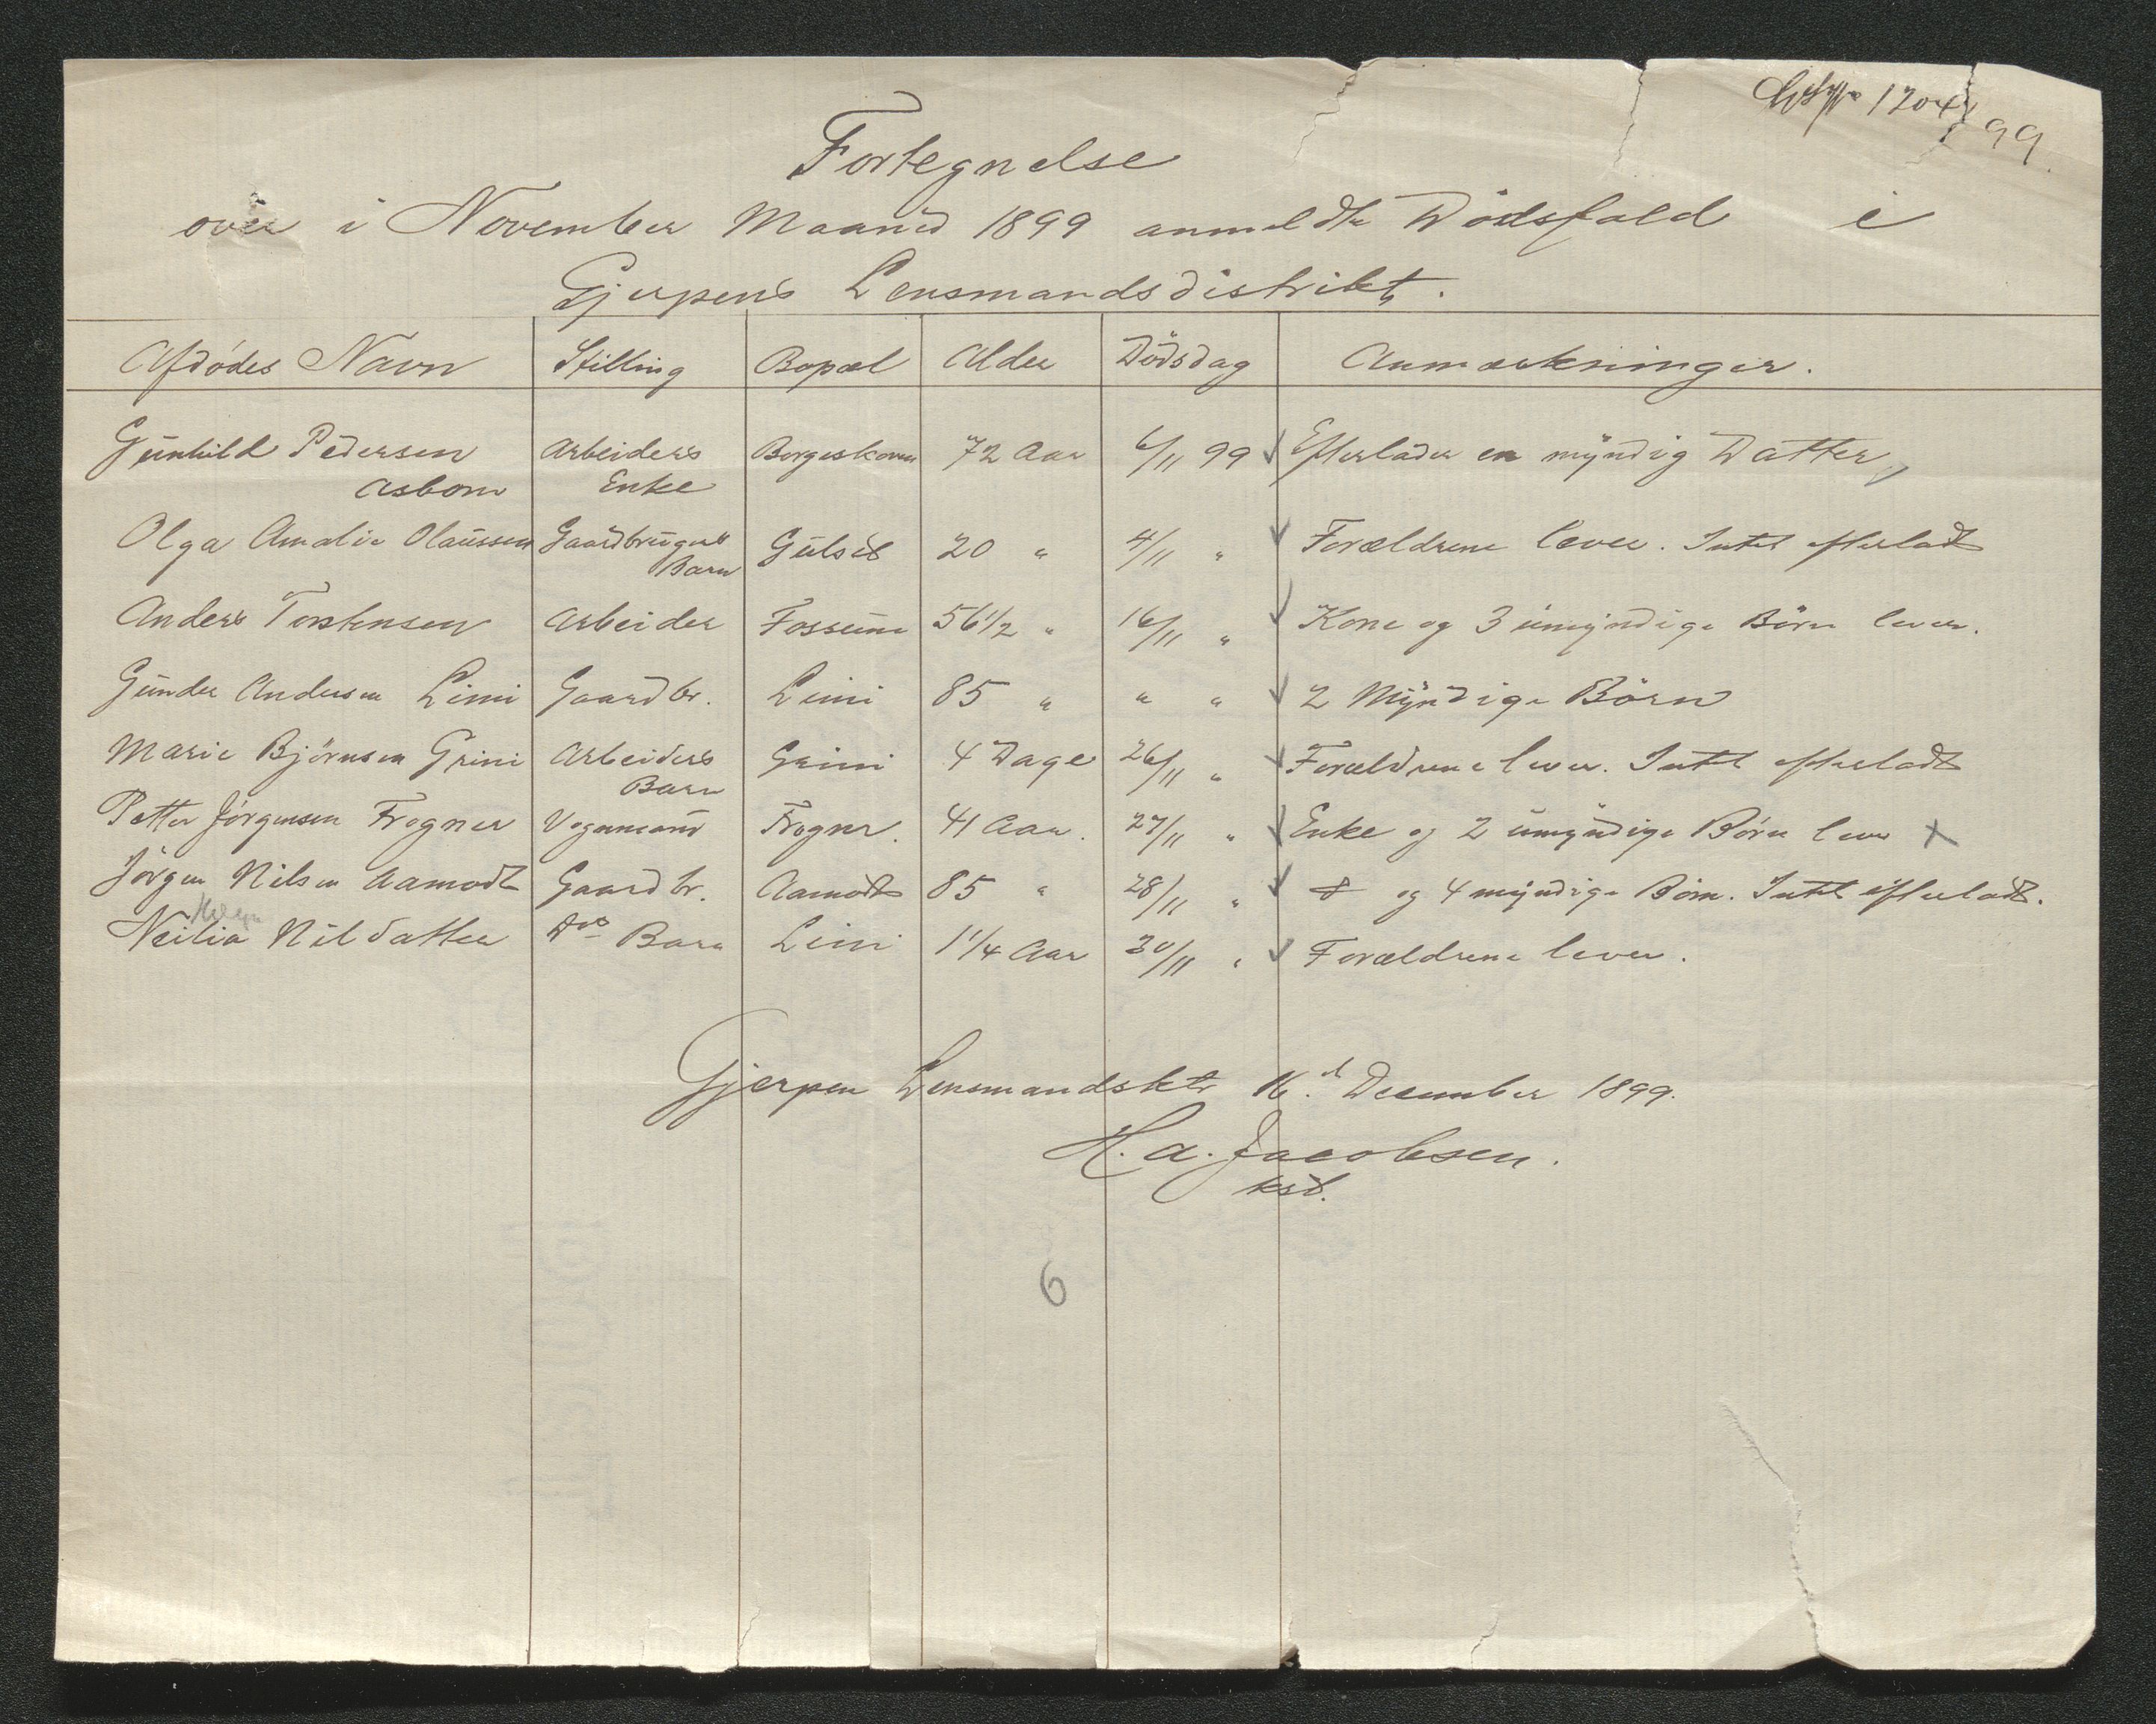 1204/99.
Fortegnelse
over i November Maaned 1899 anmeldte Dødsfald i
Gjerpens Lensmandsdistrikt.
Afdødes Navn Stilling Bopæl Alder Dødsdag Anmærkninger.
Gunhild Pedersen Arbeiders Borgeskoven 72 Aar 6/11 99 Efterlader en myndig Datter
Asbom Enke
Olga Amalie Olaussen Gaardbrugers Gulset 20 " 4/11 " Forældrene lever. Intet efterladt
Barn
Anders Torstensen Arbeider Fossum 56 1/2 " 16/11 " Kone og 3 umyndige Børn lever.
Gunder Andersen Limi Gaardbr. Limi 85 " " " 2 Myndige Børn
Marie Bjørnsen Grini Arbeiders Grini 4 Dage 26/11 " Forældrene lever. Intet efterladt
Barn
Petter Jørgensen Frogner Vognmand Frogner. 41 Aar. 27/11 " Enke og 2 umyndige Børn lever x
Jørgen Nilsen Aamodt Gaardbr. Aamodt 85 " 28/11 " og 4 myndige Børn. Intet efterladt.
Neilia Nilsdatter Do Barn Limi 1 1/4 Aar 30/11 " Forældrene lever.
Gjerpen Lensmandsktr 16.d December 1899.
H. A. Jacobsen.
kst.
6